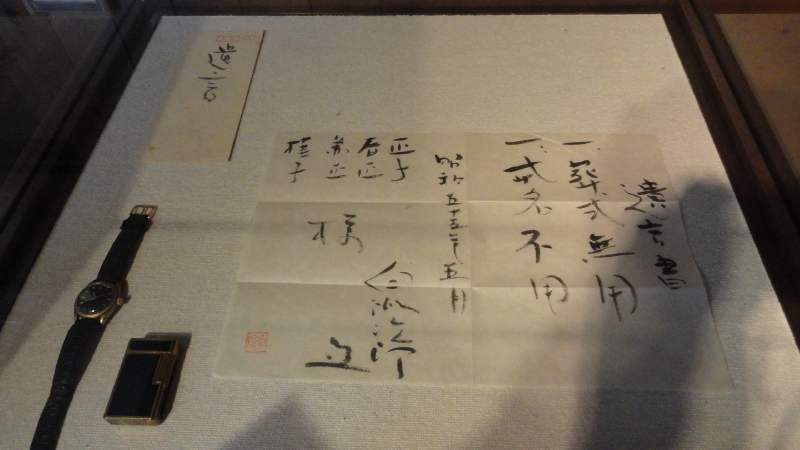 遺言書
一、葬式無用
一、戒名不用
昭和五十五年五月
白洲次郎
正子
春正
兼正
桂子
様
遺言